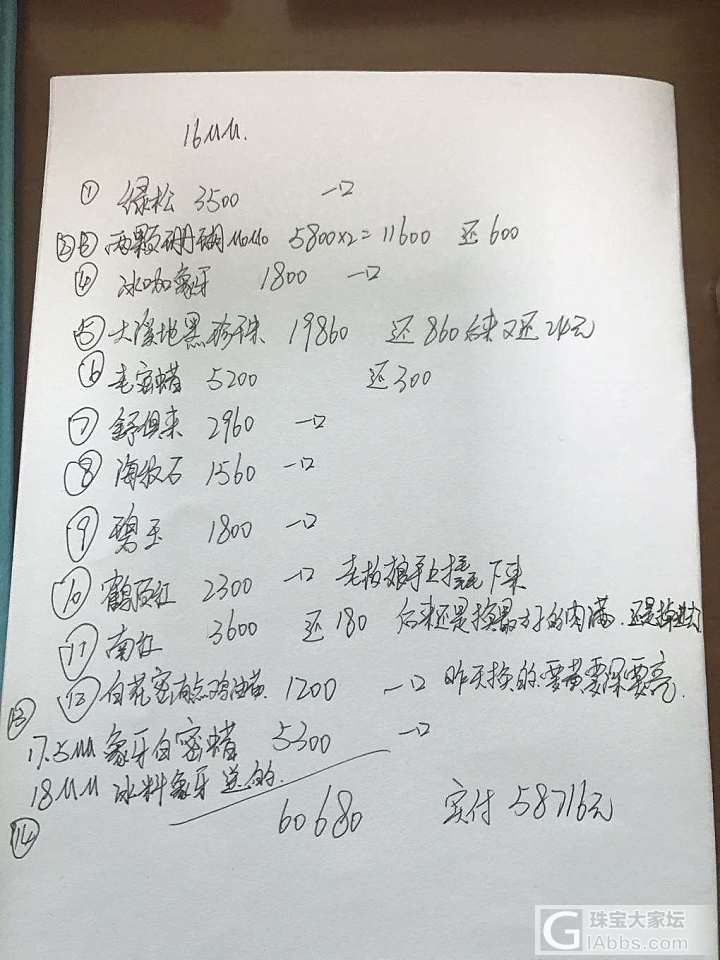 16mm.
① 绿松 3500 一口
②③ 两颗珊瑚momo 5800x2=11600 还600
④ 冰咖象牙 1800 一口
⑤ 大溪地黑珍珠 19860 还860后来又还24元
⑥ 老蜜蜡 5200 还300
⑦ 舒俱来 2960 一口
⑧ 海纹石 1560 一口
⑨ 碧玉 1800 一口
⑩ 鹤顶红 2300 一口 老板娘手上撬下来
⑪ 南红 3600 还180 后来还是换最好的肉满.还是
⑫ 白花蜜有点鸡油黄 1200 一口 昨天换的要黄要深要亮.
⑬ 17.5mm 象牙白蜜蜡 5300 一口
18mm 冰料象牙 送的.
⑭ 60680 实付 58716元
珠宝大家坛
GIAbbs.com